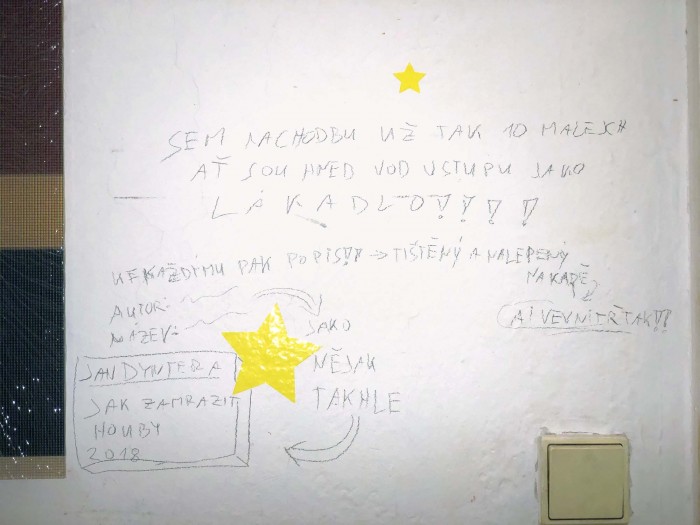 SEM NACHODBU UŽ TAK 10 MALEJCH
AŤ SOU HNED VOD VSTUPU JAKO
LÁKADLO!!!!
KE KAŽDÝMU PAK POPIS!! → TIŠTĚNÝ A NALEPENÝ
NA KAPĚ
AUTOR:
NÁZEV:
A I VEVNITŘ TAK!!
JAKO
NĚJAK
TAKHLE
JAN DYNTERA
JAK ZAMRAZIT
HOUBY
2018